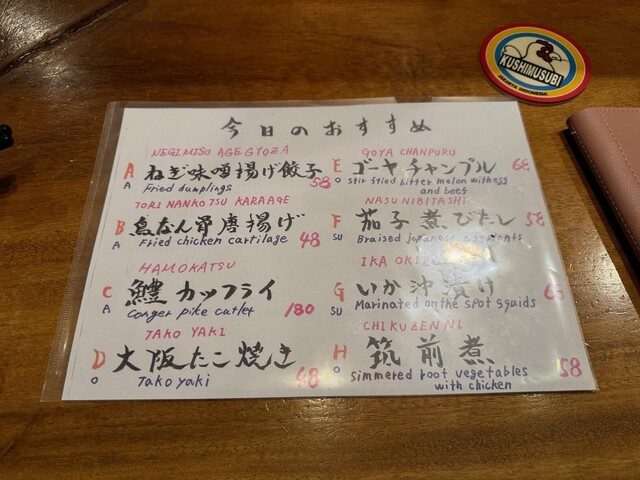 KUSHIMUSUBI
JAKARTA INDONESIA
今日のおすすめ
NEGIMISO AGE GYOZA
A ねぎ味噌揚げ餃子 58
A Fried dumplings
TORI NANKOTSU KARAAGE
B 鳥なん骨唐揚げ 48
A Fried chicken cartilage
HAMOKATSU
C 鱧カツフライ 180
A Conger pike cutlet
TAKO YAKI
D 大阪たこ焼き 68
O Takoyaki
GOYA CHANPURU
E ゴーヤチャンプル 68
O Stir fried bitter melon with egg
and beef
NASU NIBITASHI
F 茄子煮びたし 58
SU Braised japanese
IKA
G いか沖漬け 65
SU Marinated on the spot squids
CHIKUZEN NI
H 筑前煮 58
O Simmered root vegetables
with chicken